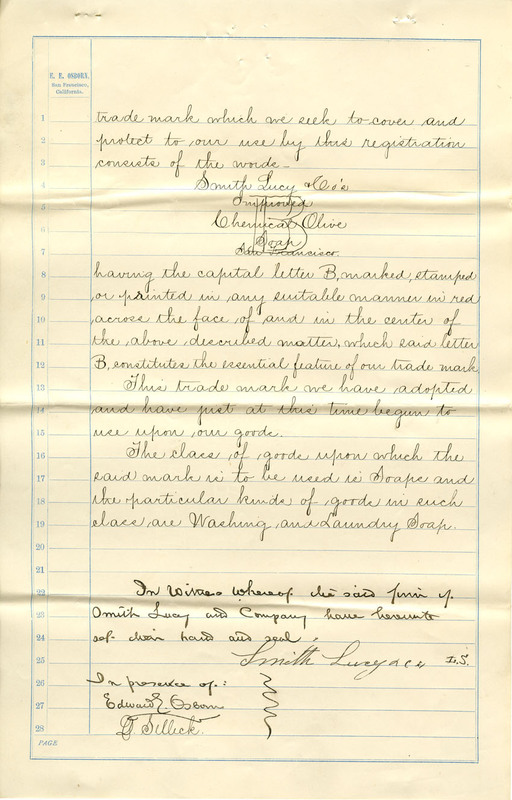 E. E. OSBORN,
San Francisco,
California.
1 trade mark which we seek to cover and
2 protect to our use by this registration
3 consists of the words –
4 Smith Lucy & Co's
5 Improved
6 Chemical Olive
B
Soap
7 San Francisco.
8 having the capital letter B, marked, stamped
9 or painted in any suitable manner in red
10 across the face of and in the center of
11 the above described matter, which said letter
12 B, constitutes the essential feature of our trade mark.
13 This trade mark we have adopted
14 and have just at this time begun to
15 use upon our goods.
16 The class of goods upon which the
17 said mark is to be used is Soaps and
18 the particular kinds of goods in such
19 class are Washing and Laundry Soap.
20
21
22 In Witness Whereof the said firm of
23 Smith Lucy and Company have hereunto
24 set their hand and seal.
25 Smith Lucy & Co L.S.
26 In presence of:
27 Edward E. Osborn
28 Silleck.
PAGE